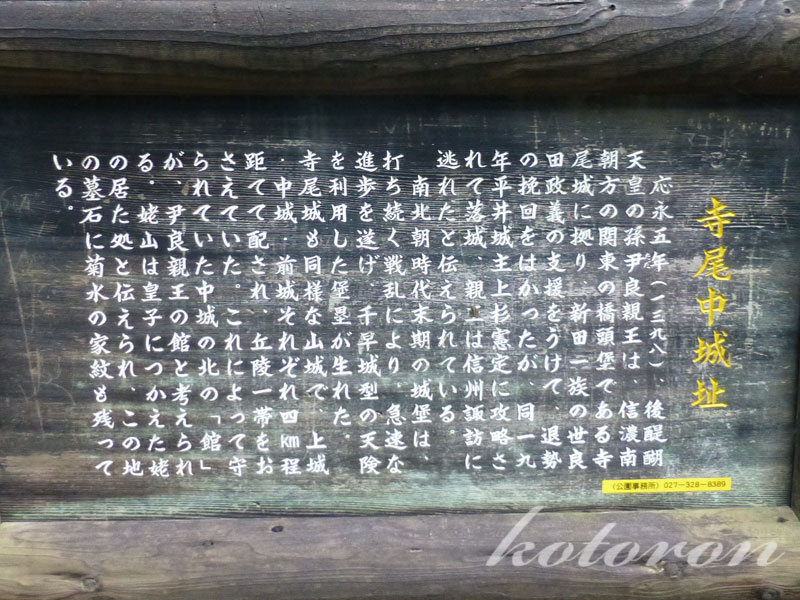 寺尾中城址
応永五年(一三九八)、後醍醐
天皇の孫尹良親王は、信濃南
朝方の関東の橋頭堡である寺
尾城に拠り、新田一族の世良
田政義の支援をうけて、退勢
の挽回をはかったが、同一九
年平井城主上杉憲定に攻略さ
れて落城、親王は信州諏訪に
逃れたと伝えられている。
南北朝時代末期の城堡は、
打ち続く戦乱により、急速な
進歩を遂げ、千早城型の天険
を利用した堡塁が生れた。
寺尾城も同様な山城で、上城
・中城・前城それぞれ四km程
距てて配され、丘陵一帯をお
さえていた。これによって守
られていた中城の北の「館」
が、尹良親王の館と考えられ
る。姥山は皇子につかえた姥
の居た処と伝えられ、この地
の墓石に菊水の家紋も残って
いる。
(公園事務所) 027-328-8389
kotoron